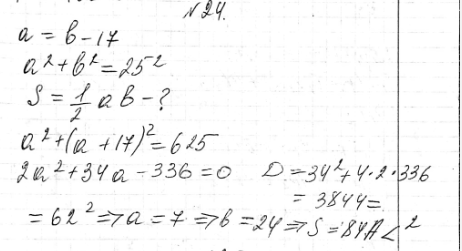 N 24.
a = b - 17
a² + b² = 25²
S = 1/2 ab - ?
a² + (a + 17)² = 625
2a² + 34a - 336 = 0 D = 34² + 4·2·336
= 3844 =
= 62² ⇒ a = 7 ⇒ b = 24 ⇒ S = 84